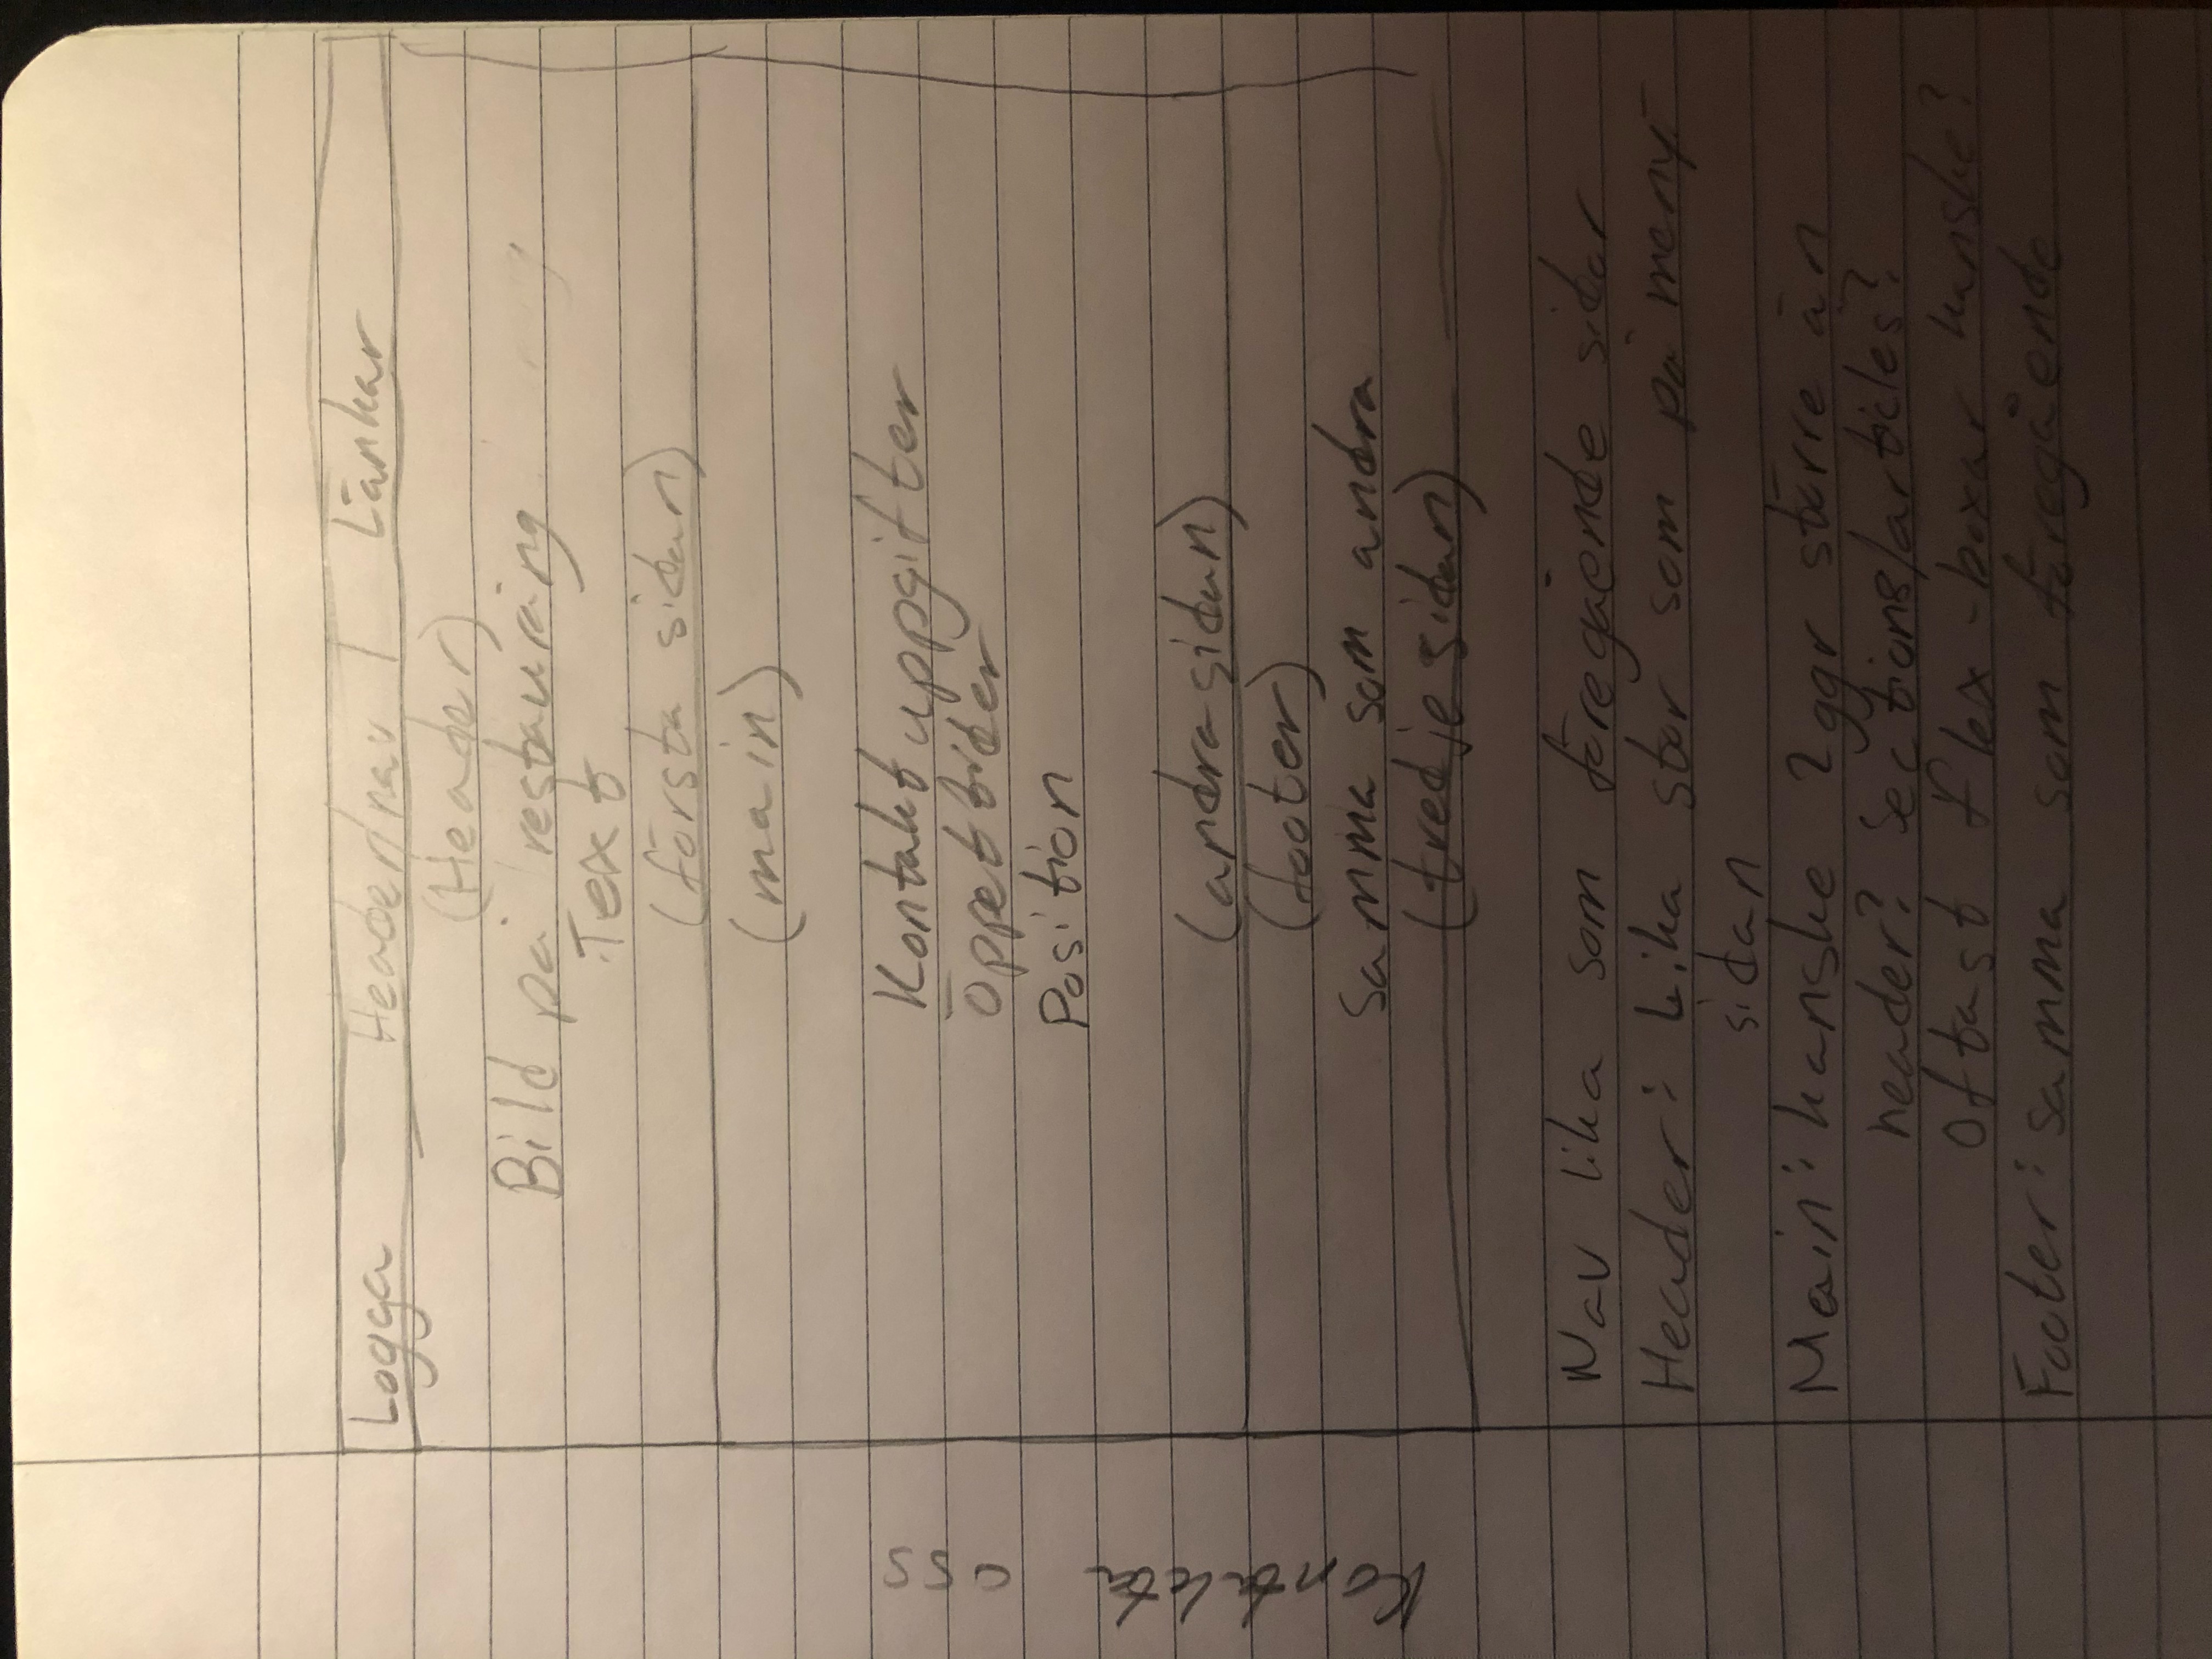 Logga Header/nav | Länkar
(Header)
Bild på restauräng
Text
(första sidan)
(main)
Kontaktuppgifter
Öppettider
Position
(andra sidan)
(footer)
Samma som andra
(tredje sidan)
Kontakta oss
Nav lika som föregående sidor
Header: Lika stor som på meny-
sidan
Main: kanske 2ggr större än
header? Sections/articles?
Oftast flex-boxar kanske?
Footer: samma som föregående